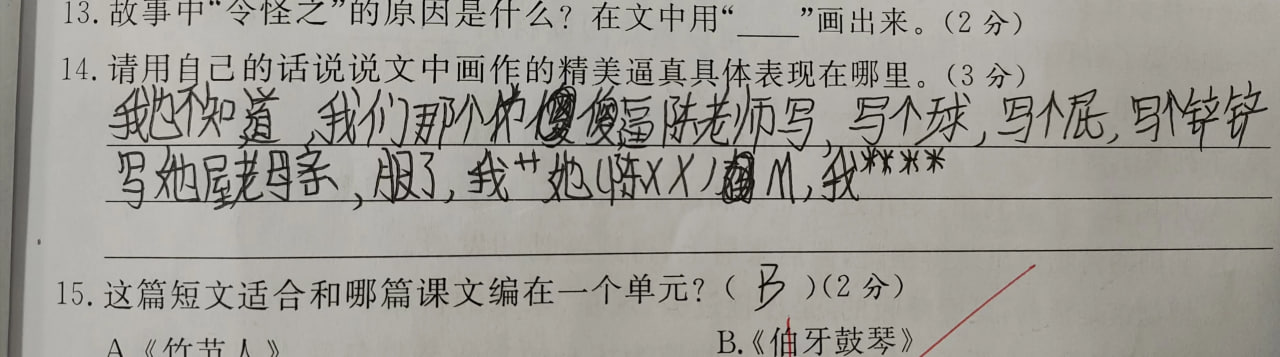 13.故事中“令怪之”的原因是什么？在文中用“____”画出来。(2 分)
14.请用自己的话说说文中画作的精美逼真具体表现在哪里。(3 分)
我也不知道,我们那个傻逼陈老师写,写个球,写个屁,写个铲铲
写她屋老母亲,服了,我艹她(陈XX)M,我****
15.这篇短文适合和哪篇课文编在一个单元?( B )(2 分)
A.《竹节人》
B.《伯牙鼓琴》